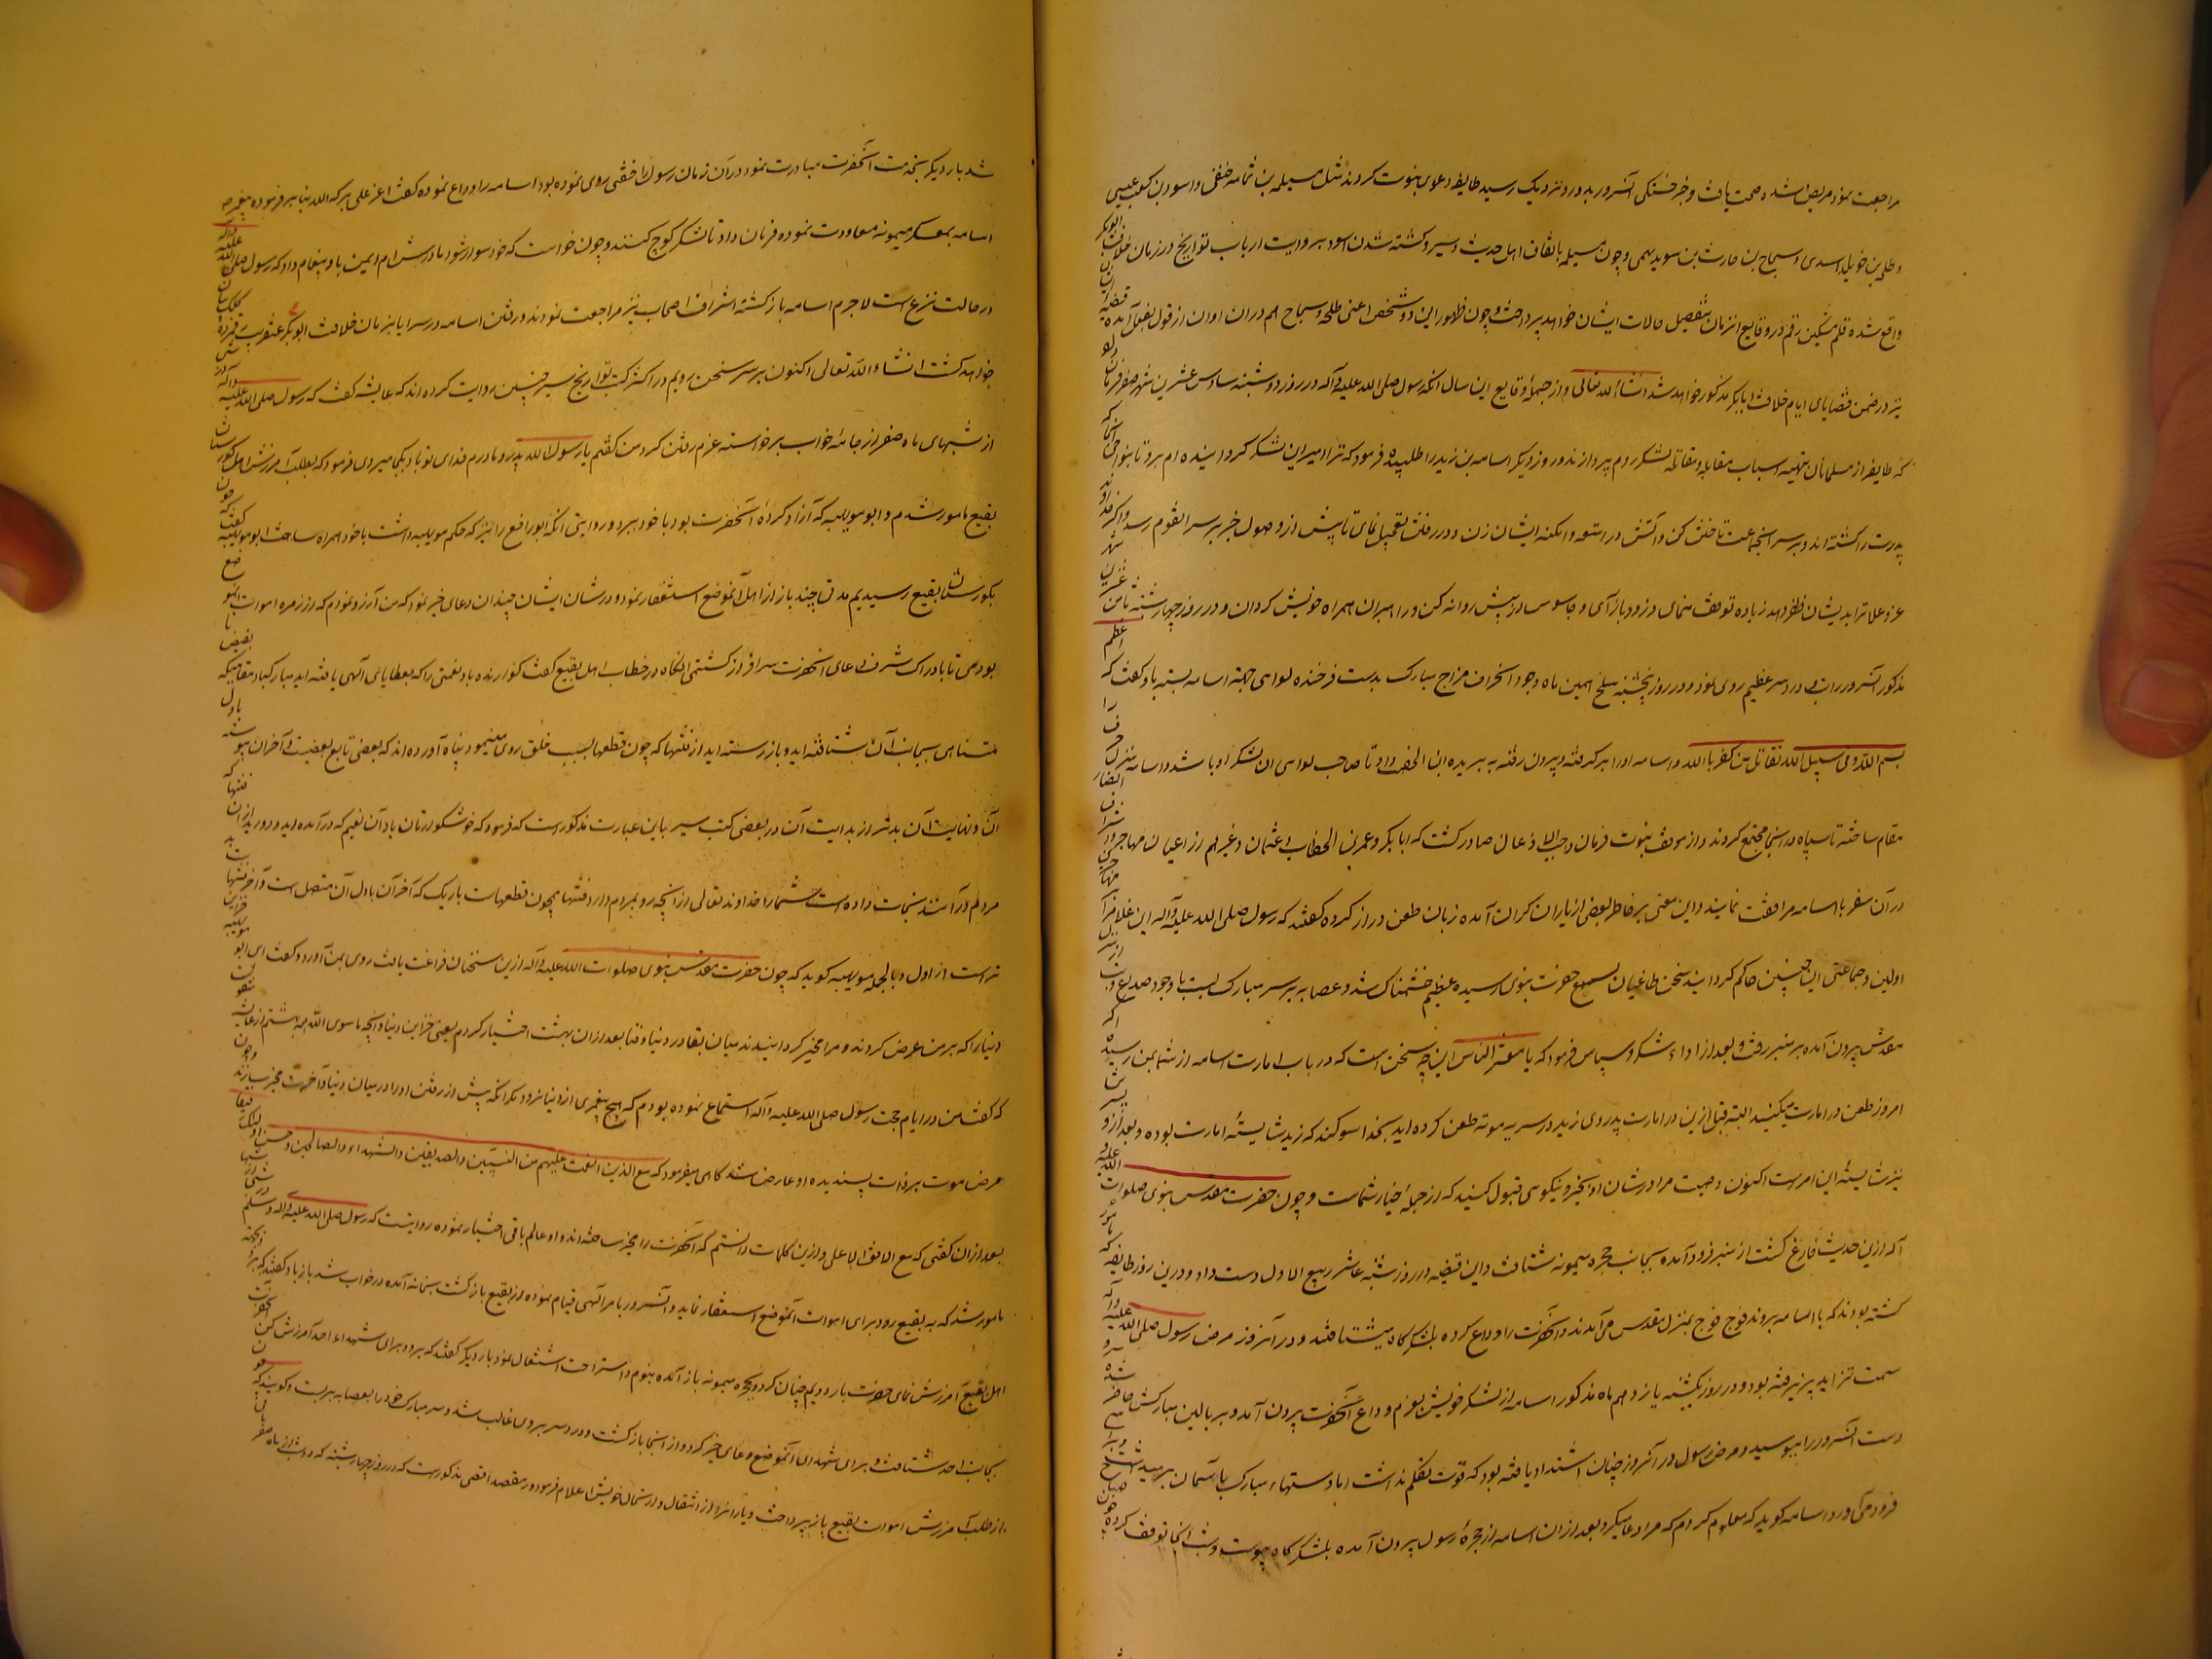 مراجعت نمود مریض شده صحت یافت و خبر خستگی آنسرور بدور و نزدیک رسید طایفه دعوی نبوت کردند مثل مسیلمه بن ثمامه حنفی و اسود بن کعب عنسی
و طلیحه بن خویلد اسدی و سجاح بنت حارث بن سوید تمیمی و چون مسیلمه باتفاق اهل حدیث و سیر و کشته شدن اسود بروایت ارباب تواریخ در زمان خلافت ابوبکر
واقع شده قلم مشکین رقم در وقایع آنزمان بتفصیل حالات ایشان خواهد پرداخت و چون ظهور این دو شخص اعنی طلیحه و سجاح هم دران اوان از قول بفعل آمده قضیه ایشان
نیز در ضمن قضایای ایام خلافت ابابکر مذکور خواهد شد انشاء الله تعالی و از جمله وقایع این سال آنکه رسول صلی الله علیه و آله در روز دوشنبه سادس عشرین شهر صفر فرمان داد
که طایفه از مسلمانان بتهیه اسباب مقابله و مقاتله لشکر روم پردازند و روز دیگر اسامه بن زید را طلبیده فرمود که ترا امیر این لشکر گردانیده ام برو تا بنواحی آنجا که
پدرت را کشته اند و بر سر آنجماعت تاختن کن و آتش در امتعه و امکنه ایشان زن و در رفتن تعجیل نمای تا پیش از وصول خبر بر سر آنقوم رسی و اگر خداوند
عز و علا ترا بدیشان ظفر دهد زیاده توقف منمای و زود باز آی و جاسوس از پیش روانه کن و راهبران همراه خویش گردان و در روز چهارشنبه ثامن عشرین شهر
مذکور آنسرور را تب و درد سر عظیم روی نمود و در روز پنجشنبه سلخ همین ماه با وجود انحراف مزاج مبارک بدست فرخنده لوای جهة اسامه بسته باو گفت که
بسم الله و فی سبیل الله تقاتل من کفر بالله و اسامه لوا را برگرفته و بیرون رفته به بریده ابن الخصیب داد تا صاحب لوای آن لشکر او باشد و اسامه منزل جرف را
مقام ساخته تا سپاه در آنجا مجتمع گردند و از موقف نبوت فرمان واجب الاذعان صادر گشت که ابابکر و عمر بن الخطاب و عثمان و غیرهم از اعیان مهاجر و اشراف انصار
در آن سفر با اسامه مرافقت نمایند و این معنی بر خاطر بعضی از یاران گران آمده زبان طعن دراز کرده گفتند که رسول صلی الله علیه و آله این غلام را بر مهاجرین
اولین و جماعتی این چنین حاکم گردانید سخن طاغیان بسمع حضرت نبوی رسیده عظیم خشمناک شد و عصابه بر سر مبارک بست با وجود صداع و تب از منزل
مقدس بیرون آمده بر منبر رفت و بعد از اداء شکر و سپاس فرمود که یا معشر الناس این چه سخن است که در باب امارت اسامه از شما بمن رسیده اگر
امروز طعن در امارت میکنید البته قبل ازین در امارت پدر وی زید در سریه موته طعن کرده اید بخدا سوگند که زید شایسته امارت بوده و بعد از و پسرش
نیز شایسته این امر است اکنون وصیت مرا در شان او بخیر و نیکویی قبول کنید که از جمله خیار شماست و چون حضرت مقدس نبوی صلوات الله علیه و
آله ازین حدیث فارغ گشت از منبر فرود آمده بجانب حجره میمونه شتافت و این قضیه در روز شنبه عاشر ربیع الاول دست داد و درین روز طایفه که مامور
گشته بودند که با اسامه بروند فوج فوج بمنزل مقدس می آمدند و آنحضرت را وداع کرده بلشکرگاه میشتافتند و در آنروز مرض رسول صلی الله علیه و آله
سمت تزاید پذیرفته بود و در روز یکشنبه یازدهم ماه مذکور اسامه از لشکر خویش بعزم وداع آنحضرت بیرون آمد و بر بالین مبارکش حاضر شده سر و
دست آنسرور را ببوسید و مرض رسول در آنروز چنان اشتداد یافته بود که قوت تکلم نداشت اما دستهاء مبارک بآسمان بر میداشت و بر اسامه
فرود می آورد اسامه گوید که معلوم کردم که مرا دعا میکرد بعد ازان اسامه از حجره رسول بیرون آمده بلشکرگاه پیوست و شب آنجا توقف کرده چون صباح
شد بار دیگر بخدمت آنحضرت مبادرت نمود در آن زمان رسول را خفتی روی نموده بود اسامه را وداع نموده گفت اغز علی برکة الله بنابر فرموده پیغمبر
اسامه بمعسکر میمونه معاودت نموده فرمان داد تا لشکر کوچ کنند و چون خواست که خود سوار شود مادرش ام ایمن باو پیغام داد که رسول صلی الله علیه و آله
در حالت نزع است لاجرم اسامه بازگشته اشراف اصحاب نیز مراجعت نمودند و رفتن اسامه در سرایا بزمان خلافت ابوبکر عنقریب
خواهد گشت انشاء الله تعالی اکنون بر سر سخن رویم در اکثر کتب تواریخ و سیر چنین روایت کرده اند که عایشه گفت که رسول صلی الله علیه و آله
از شبهای ماه صفر از جامه خواب برخواسته عزم رفتن کرد من گفتم یا رسول الله پدر و مادرم فدای تو باد بکجا میروی فرمود که بطلب آمرزش اهل گورستان
بقیع مامور شدم و ابو مویهبه که آزاد کرده آنحضرت بود با خود ببرد و روایتی آنکه ابو رافع را نیز که حکم مویهبه داشت با خود همراه ساخت ابو مویهبه گفت که چون
بگورستان بقیع رسیدیم مدتی چند باز از اهل آنموضع استغفار نمود و در شان ایشان چندان دعای خیر نمود که من آرزو نمودم که از زمره اموات آنموضع
بودمی تا بادراک شرف دعای آنحضرت سرافراز گشتمی آنگاه در خطاب اهل بقیع گفت گوارنده باد نعمتی را که بعطایای الهی یافته اید مبارکباد مقامیکه بفیض
متناهی سبحان آن شتافته اید و باز رسته اید از فتنها که چون قطعها بسبب خلق روی مینمود پناه آورده اند که بعضی تابع بعضیست و آخران باول پیوسته
آن و نهایت آن بدتر از بدایت آن در بعضی کتب سیر باین عبارت مذکور است که فرمود که خوشگوار تان باد آن نعیم که در آمده اید و دورید ازان فتنها که
مردم در آنند نجات داده است شما را خداوند تعالی از آنچه رو بمردم دارد فتنها همچون قطعهات باریک که آخر آن باول آن متصل است و آخر فتنها بد
تر است از اول و بالجمله مویهبه گوید که چون حضرت مقدس نبوی صلوات الله علیه و آله ازین سخنان فراغت یافت روی بمن آورد و گفت ای ابو مویهبه خزاین
دنیا را که بر من عرض کردند و مرا مخیر گردانیدند میان بقا در دنیا و فنا بعد ازان بهشت اختیار کردم یعنی خزاین دنیا و آنچه ما سوی الله
که گفت من در ایام صحت رسول صلی الله علیه و آله استماع نموده بودم که هیچ پیغمبری از دنیا نرود مگر آنکه پیش از رفتن او را در میان دنیا و آخرت مخیر سازند و چون
مرض موت بر ذات پسندیده او عارض شد گاهی میفرمود که مع الذین انعمت علیهم من النبیین و الصدیقین و الشهداء و الصالحین و حسن اولئک رفیقا
بعد ازان گفتی که مع الرفیق الاعلی و ازین کلمات دانستم که آنحضرت را مخیر ساخته اند و او عالم باقی اختیار نموده روایتست که رسول صلی الله علیه و آله و سلم
مامور شد که به بقیع رود برای اموات آنموضع استغفار نماید و آنسرور بامر الهی قیام نموده از بقیع بازگشت بخانه آمده در خواب شد باز باو گفتند که برو
اهل بقیع را آمرزش نمای حضرت بار دویم چنان کرد و بحجره میمونه باز آمده بنوم و استراحت اشتغال نمود بار دیگر گفتند که برو برای شهداء احد آمرزش کن
بجانب احد شتافت و برای شهدای آنموضع دعای خیر کرد و از آنجا بازگشت و درد سر بر وی غالب شد و سر مبارک خود را بعصابه بر بست و گویند که چون
از طلب آمرزش اموات بقیع باز پرداخت و یاران را از انتقال و ارتحال خویش اعلام فرمود و در مقصد اقصی مذکور است که در روز چهارشنبه که دو شب از ماه صفر